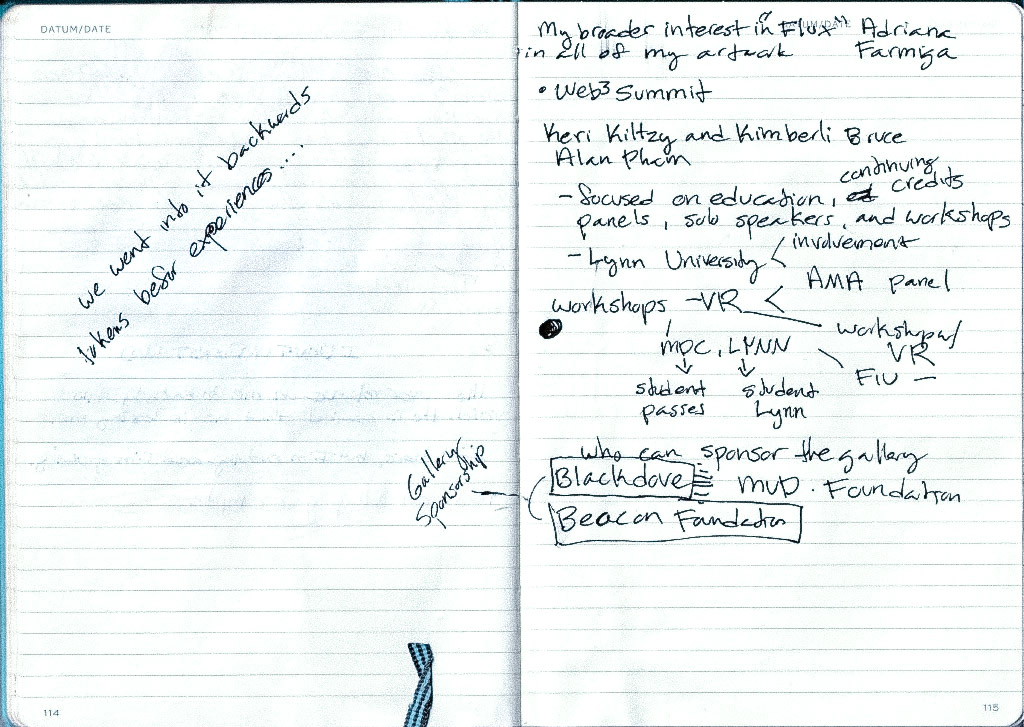 DATUM/DATE
we went into it backwards
tokens befor experiences....
Gallery
Sponsorship
114
DATUM/DATE
My broader interest in "Flux" Adriana
in all of my artwork Farmiga
• Web3 Summit
Keri Kiltzy and Kimberli Bruce
Alan Pham
continuing
- focused on education, credits
panels, sub speakers, and workshops
- Lynn University < involvement
workshops - VR < AMA panel
workshop w/
VR
MDC, LYNN
FIU -
student student
passes Lynn
who can sponsor the gallery
Blackdove MUD. Foundation
Beacon Foundation
115